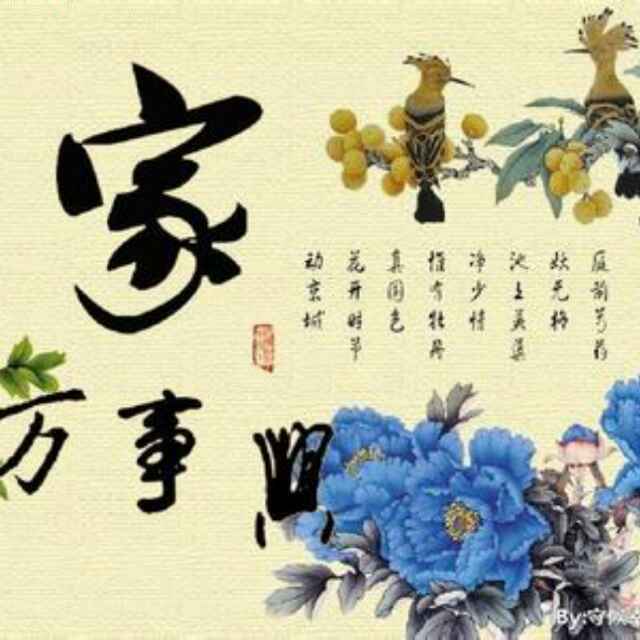 家
万事興
庭前芍药
妖无格
池上芙蕖
净少情
惟有牡丹
真国色
花开时节
动京城
By: